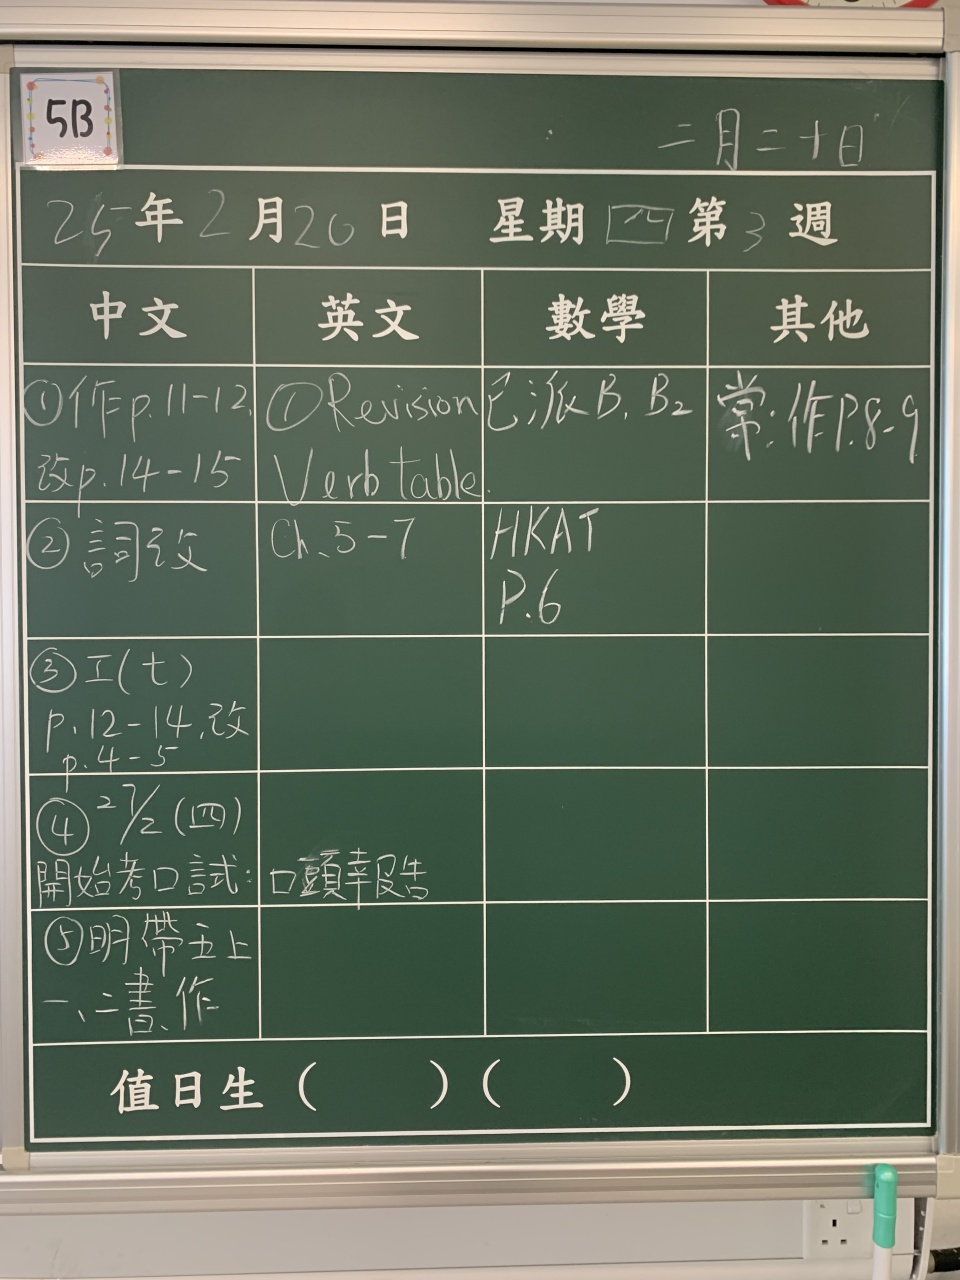 5B
二月二十日
25年2月20日 星期四第3週
中文 英文 數學 其他
①作p.11-12,
改p.14-15
①Revision
Verb table.
已派B1, B2
常:作P.8-9
②詞改
Ch.5-7
HKAT
P.6
③工(七)
p.12-14,改
p.4-5
④27/2(四)
開始考口試:口頭報告
⑤明帶五上
一、二書、作
值日生( )( )